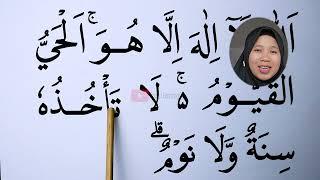 اَللّٰهُ لَآ اِلٰهَ اِلَّا هُوَۚ اَلْحَيُّ
الْقَيُّوْمُ ۵ۚ لَا تَأْخُذُهٗ
سِنَةٌ وَّلَا نَوْمٌۗ